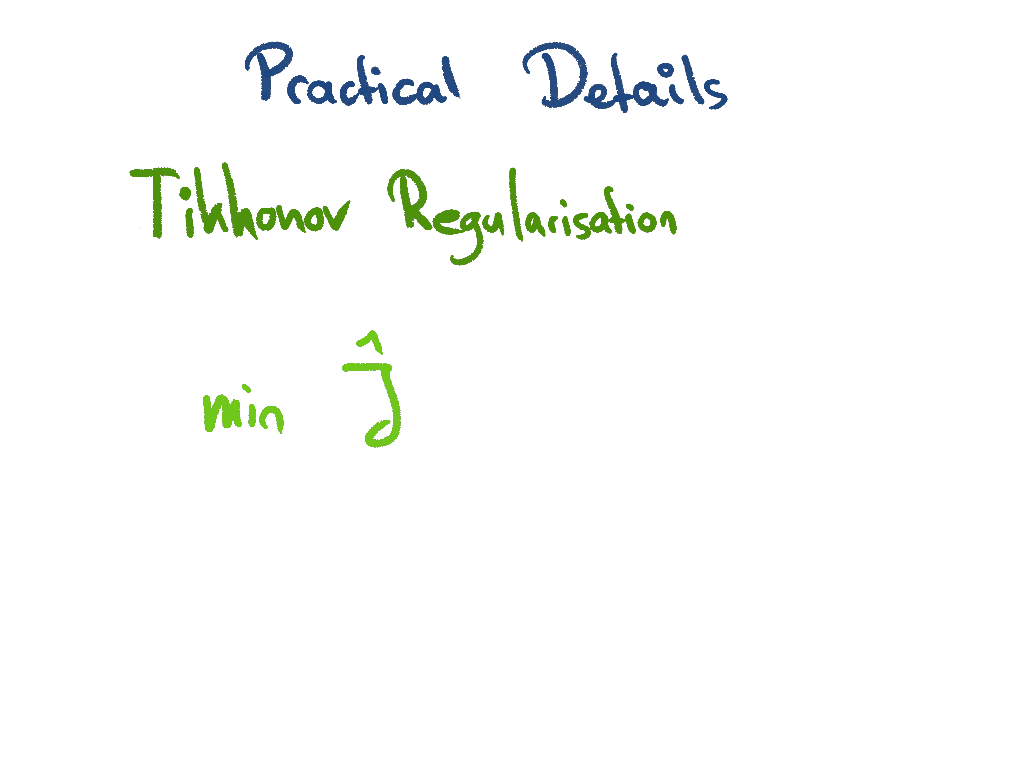 Practical Details
Tikhonov Regularisation
min Ĵ